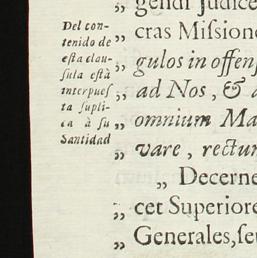 Del con-
tenido de
esta clau-
sula está
interpues
ta supli-
ca à su
Santidad
„ gendi Judice
„ cras Missione
„ gulos in offens
„ ad Nos, & a
„ omnium Ma
„ vare, rectur
„ Decerne
„ cet Superiore
„ Generales, seu